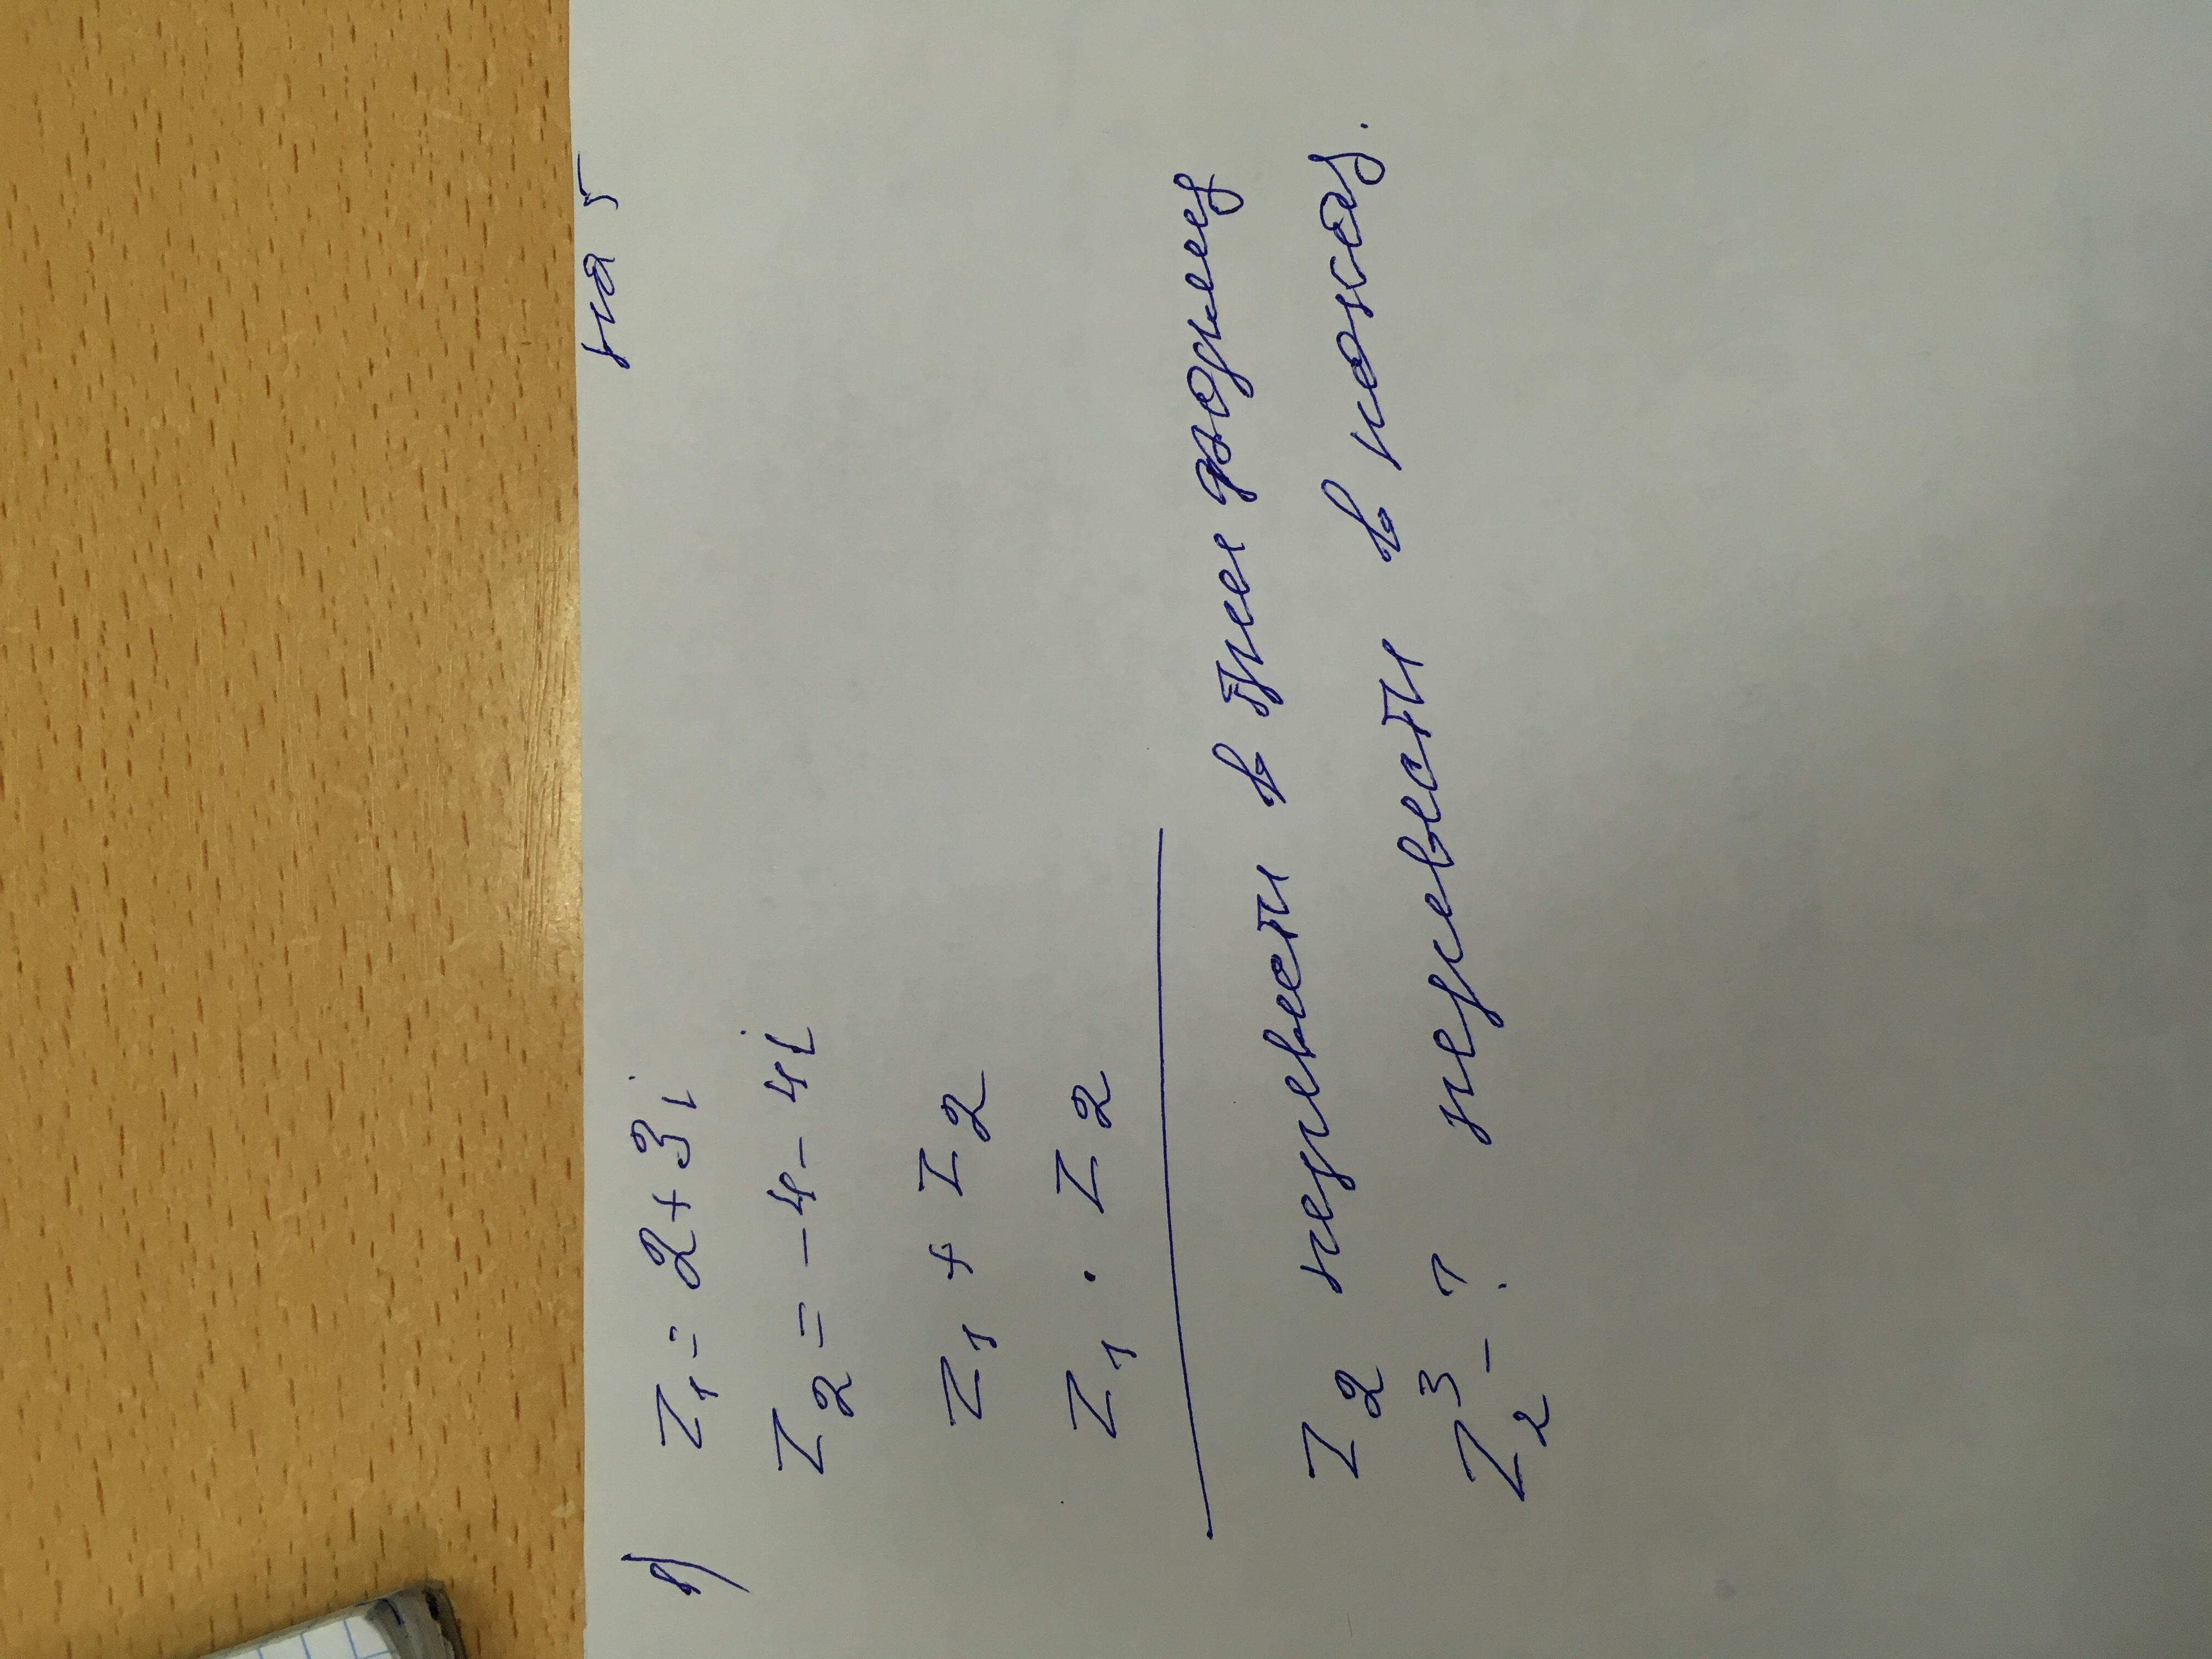 на 5
1) Z₁ = 2+3i
Z₂ = -4-4i
Z₁ + Z₂
Z₁ · Z₂
Z₂ перевести в триг формер
Z₂³ - ? перевести в показ.